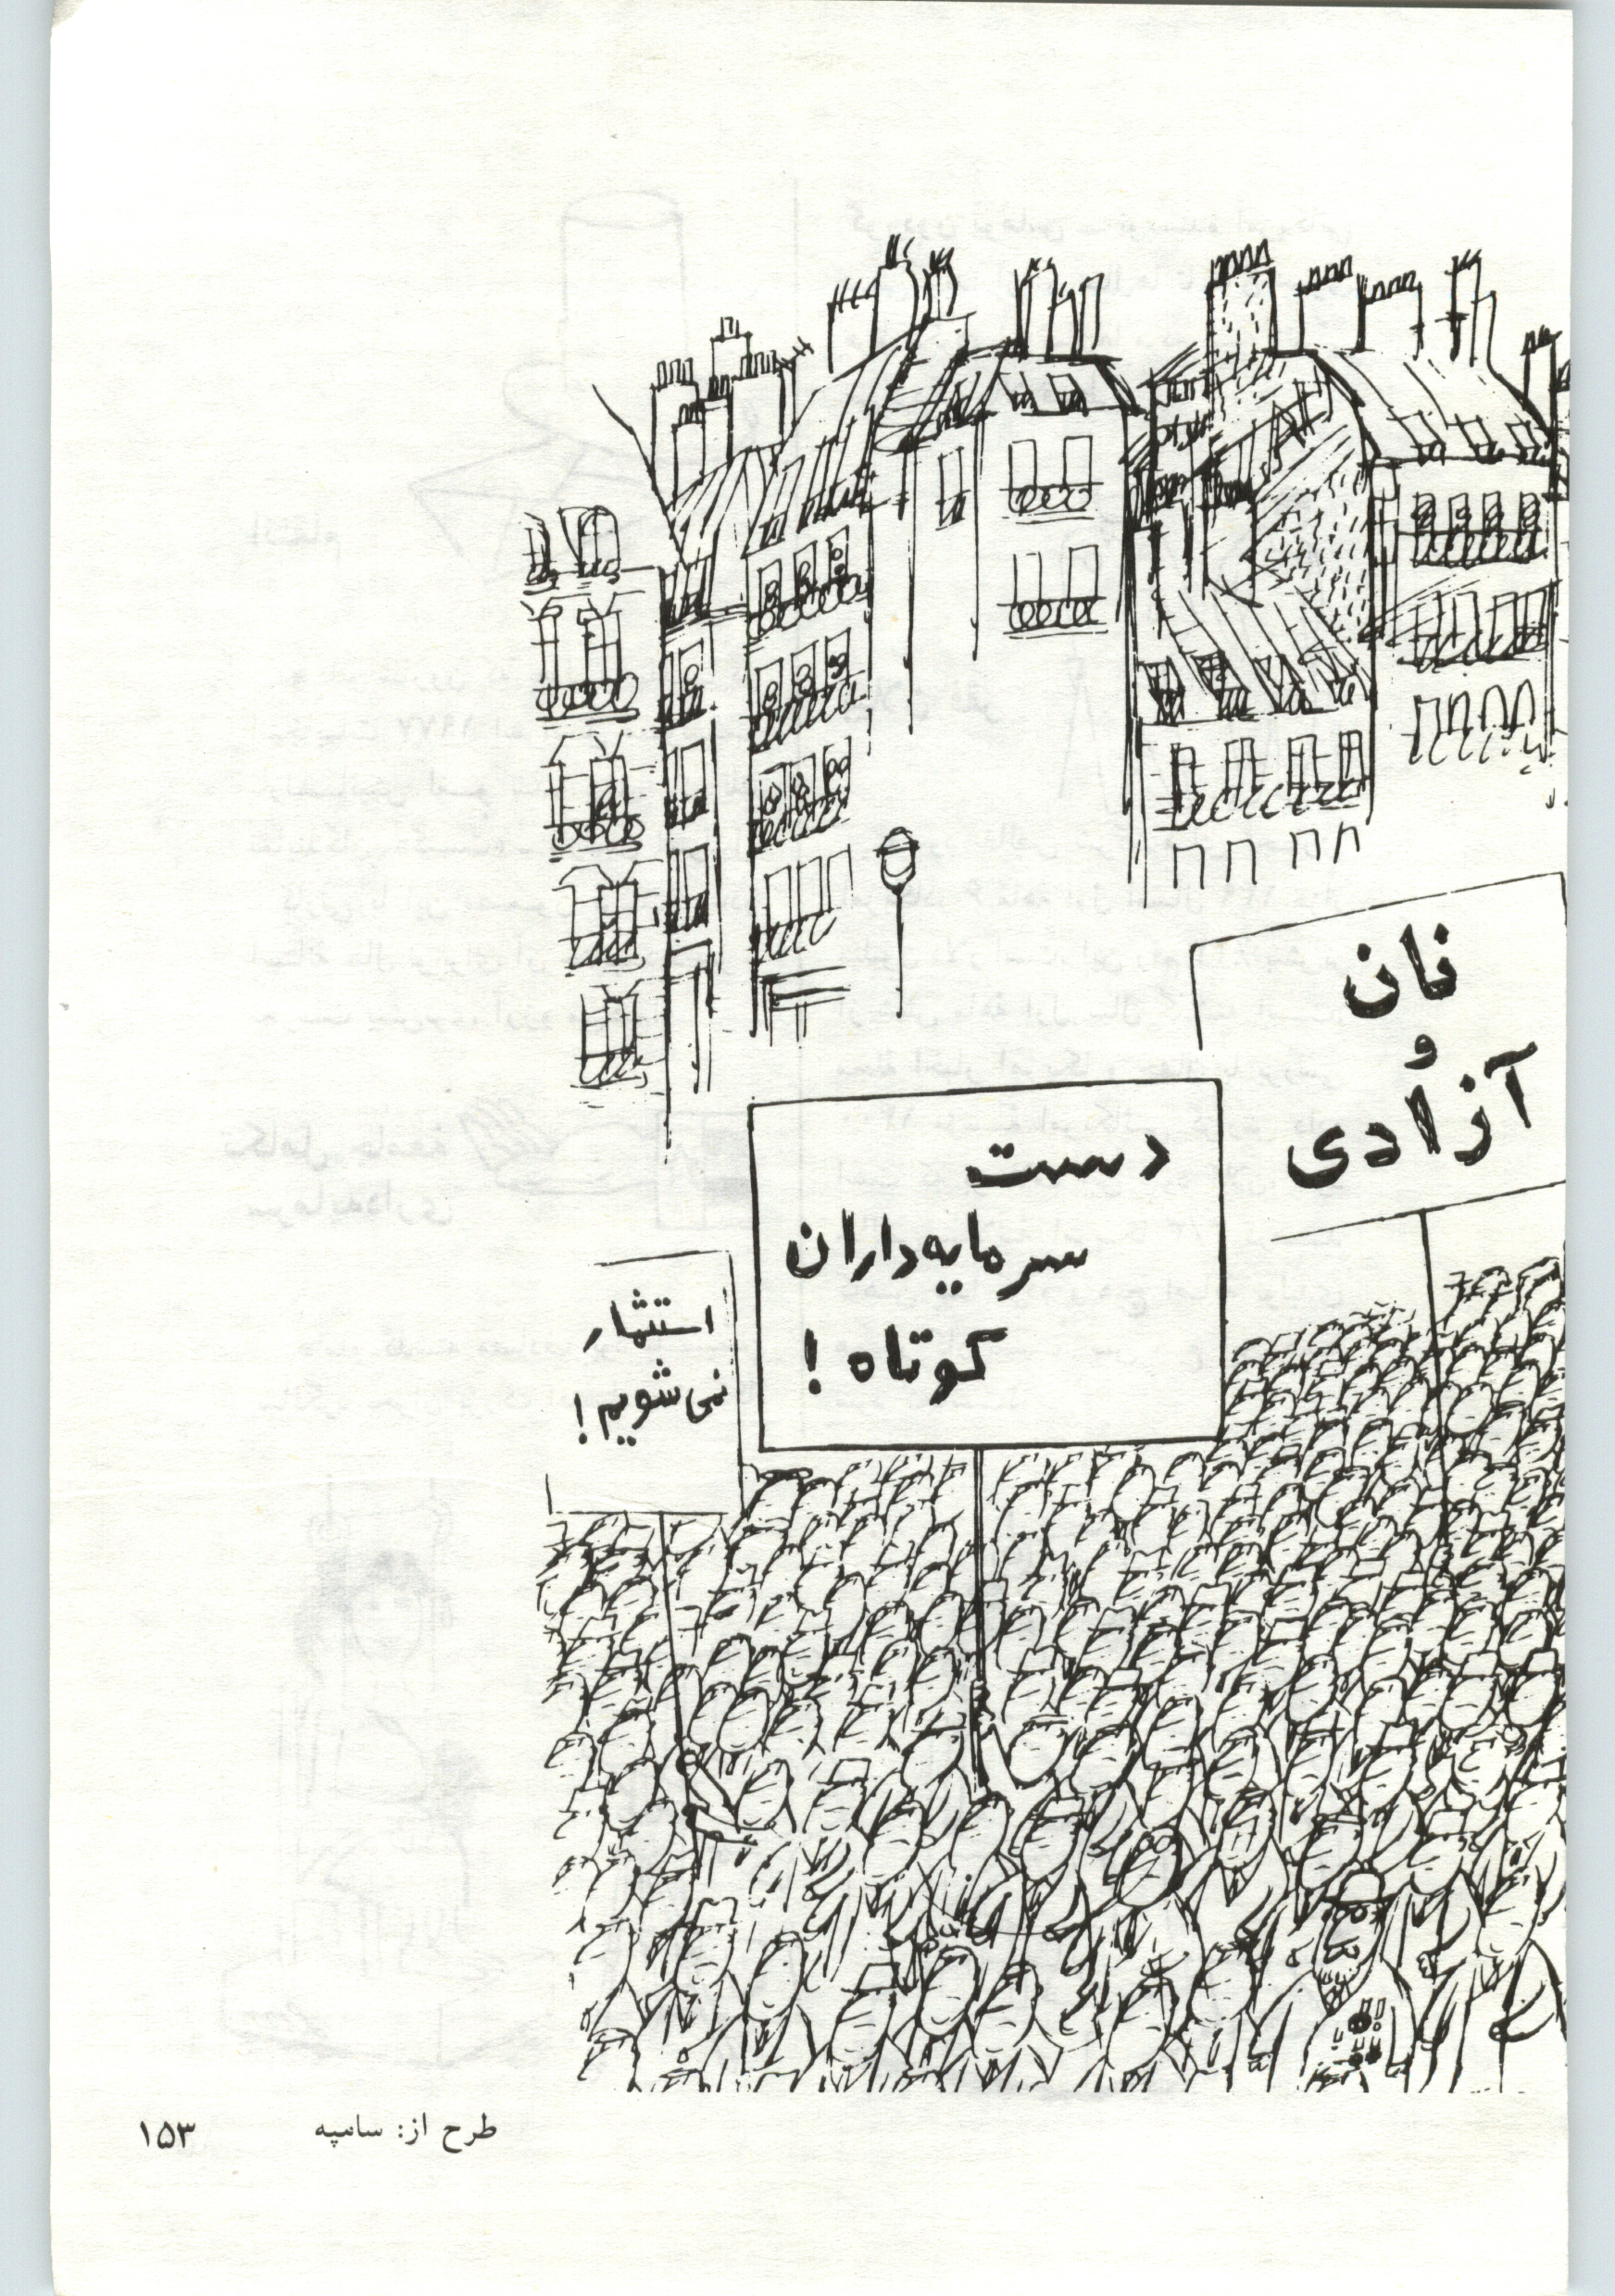 نان
و
آزادی
دست
سرمایه‌داران
کوتاه !
استثمار
نمی‌شویم !
طرح از: سامپه
۱۵۳